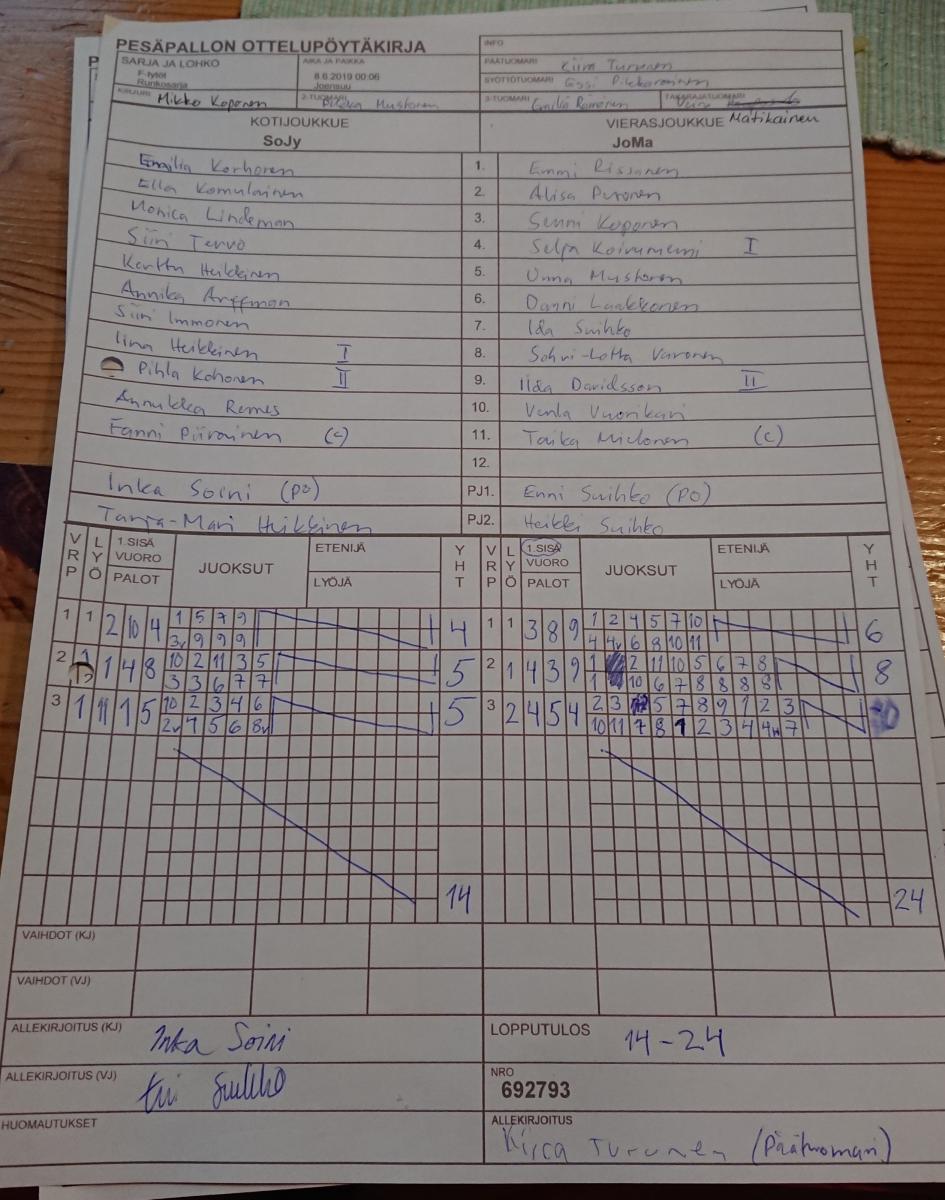 PESÄPALLON OTTELUPÖYTÄKIRJA
INFO
SARJA JA LOHKO
F-tytöt
Runkosarja
AIKA JA PAIKKA
8.6.2019 00:06
Joensuu
PÄÄTUOMARI Turunen
SYÖTTÖTUOMARI Essi
KIRJURI Mikko Koponen
2-TUOMARI Mustonen
3-TUOMARI Emilia
TAKARAJATUOMARI Matikainen
KOTIJOUKKUE
SoJy
VIERASJOUKKUE
JoMa
Emilia Korhonen 1. Emmi Rissanen
Ella Komulainen 2. Alisa Puronen
Monica Lindeman 3. Senni Koponen
Siiri Tervo 4. Selja Koivuniemi I
Kerttu Heikkinen 5. Unna Mustonen
Annika Arffman 6. Danni Laakkonen
Siiri Immonen 7. Iida Suihko
Iina Heikkinen I 8. Sohvi-Lotta Varonen
Pihla Kohonen II 9. Iida Davidsson II
Annukka Remes 10. Venla Vuorikari
Fanni Piirainen (c) 11. Taika (c)
12.
Inka Soini (PO) PJ1. Enni Suihko (PO)
Tanja-Mari Heikkinen PJ2. Heikki Suihko
VRP LYÖ 1.SISÄ VUORO PALOT JUOKSUT ETENIJÄ LYÖJÄ YHT VRP LYÖ 1.SISÄ VUORO PALOT JUOKSUT ETENIJÄ LYÖJÄ YHT
1 1 2 10 4 1 5 7 9 4 1 1 3 8 9 1 2 4 5 7 10 6
3v 9 9 9 4 4v 6 8 10 11
2 1 4 8 10 2 11 3 5 5 2 1 4 3 9 1 2 11 10 5 6 7 8 8
3 3 6 7 7 1 10 6 7 8 8 8 8
3 1 11 1 5 10 2 3 4 6 5 3 2 4 5 4 2 3 5 7 8 9 1 2 3
2v 4 5 6 8v 10 11 7 8 1 2 3 4 4v 7
14 24
VAIHDOT (KJ)
VAIHDOT (VJ)
ALLEKIRJOITUS (KJ) Inka Soini
LOPPUTULOS 14-24
ALLEKIRJOITUS (VJ) Suihko
NRO
692793
HUOMAUTUKSET
ALLEKIRJOITUS
Turunen (Päätuomari)